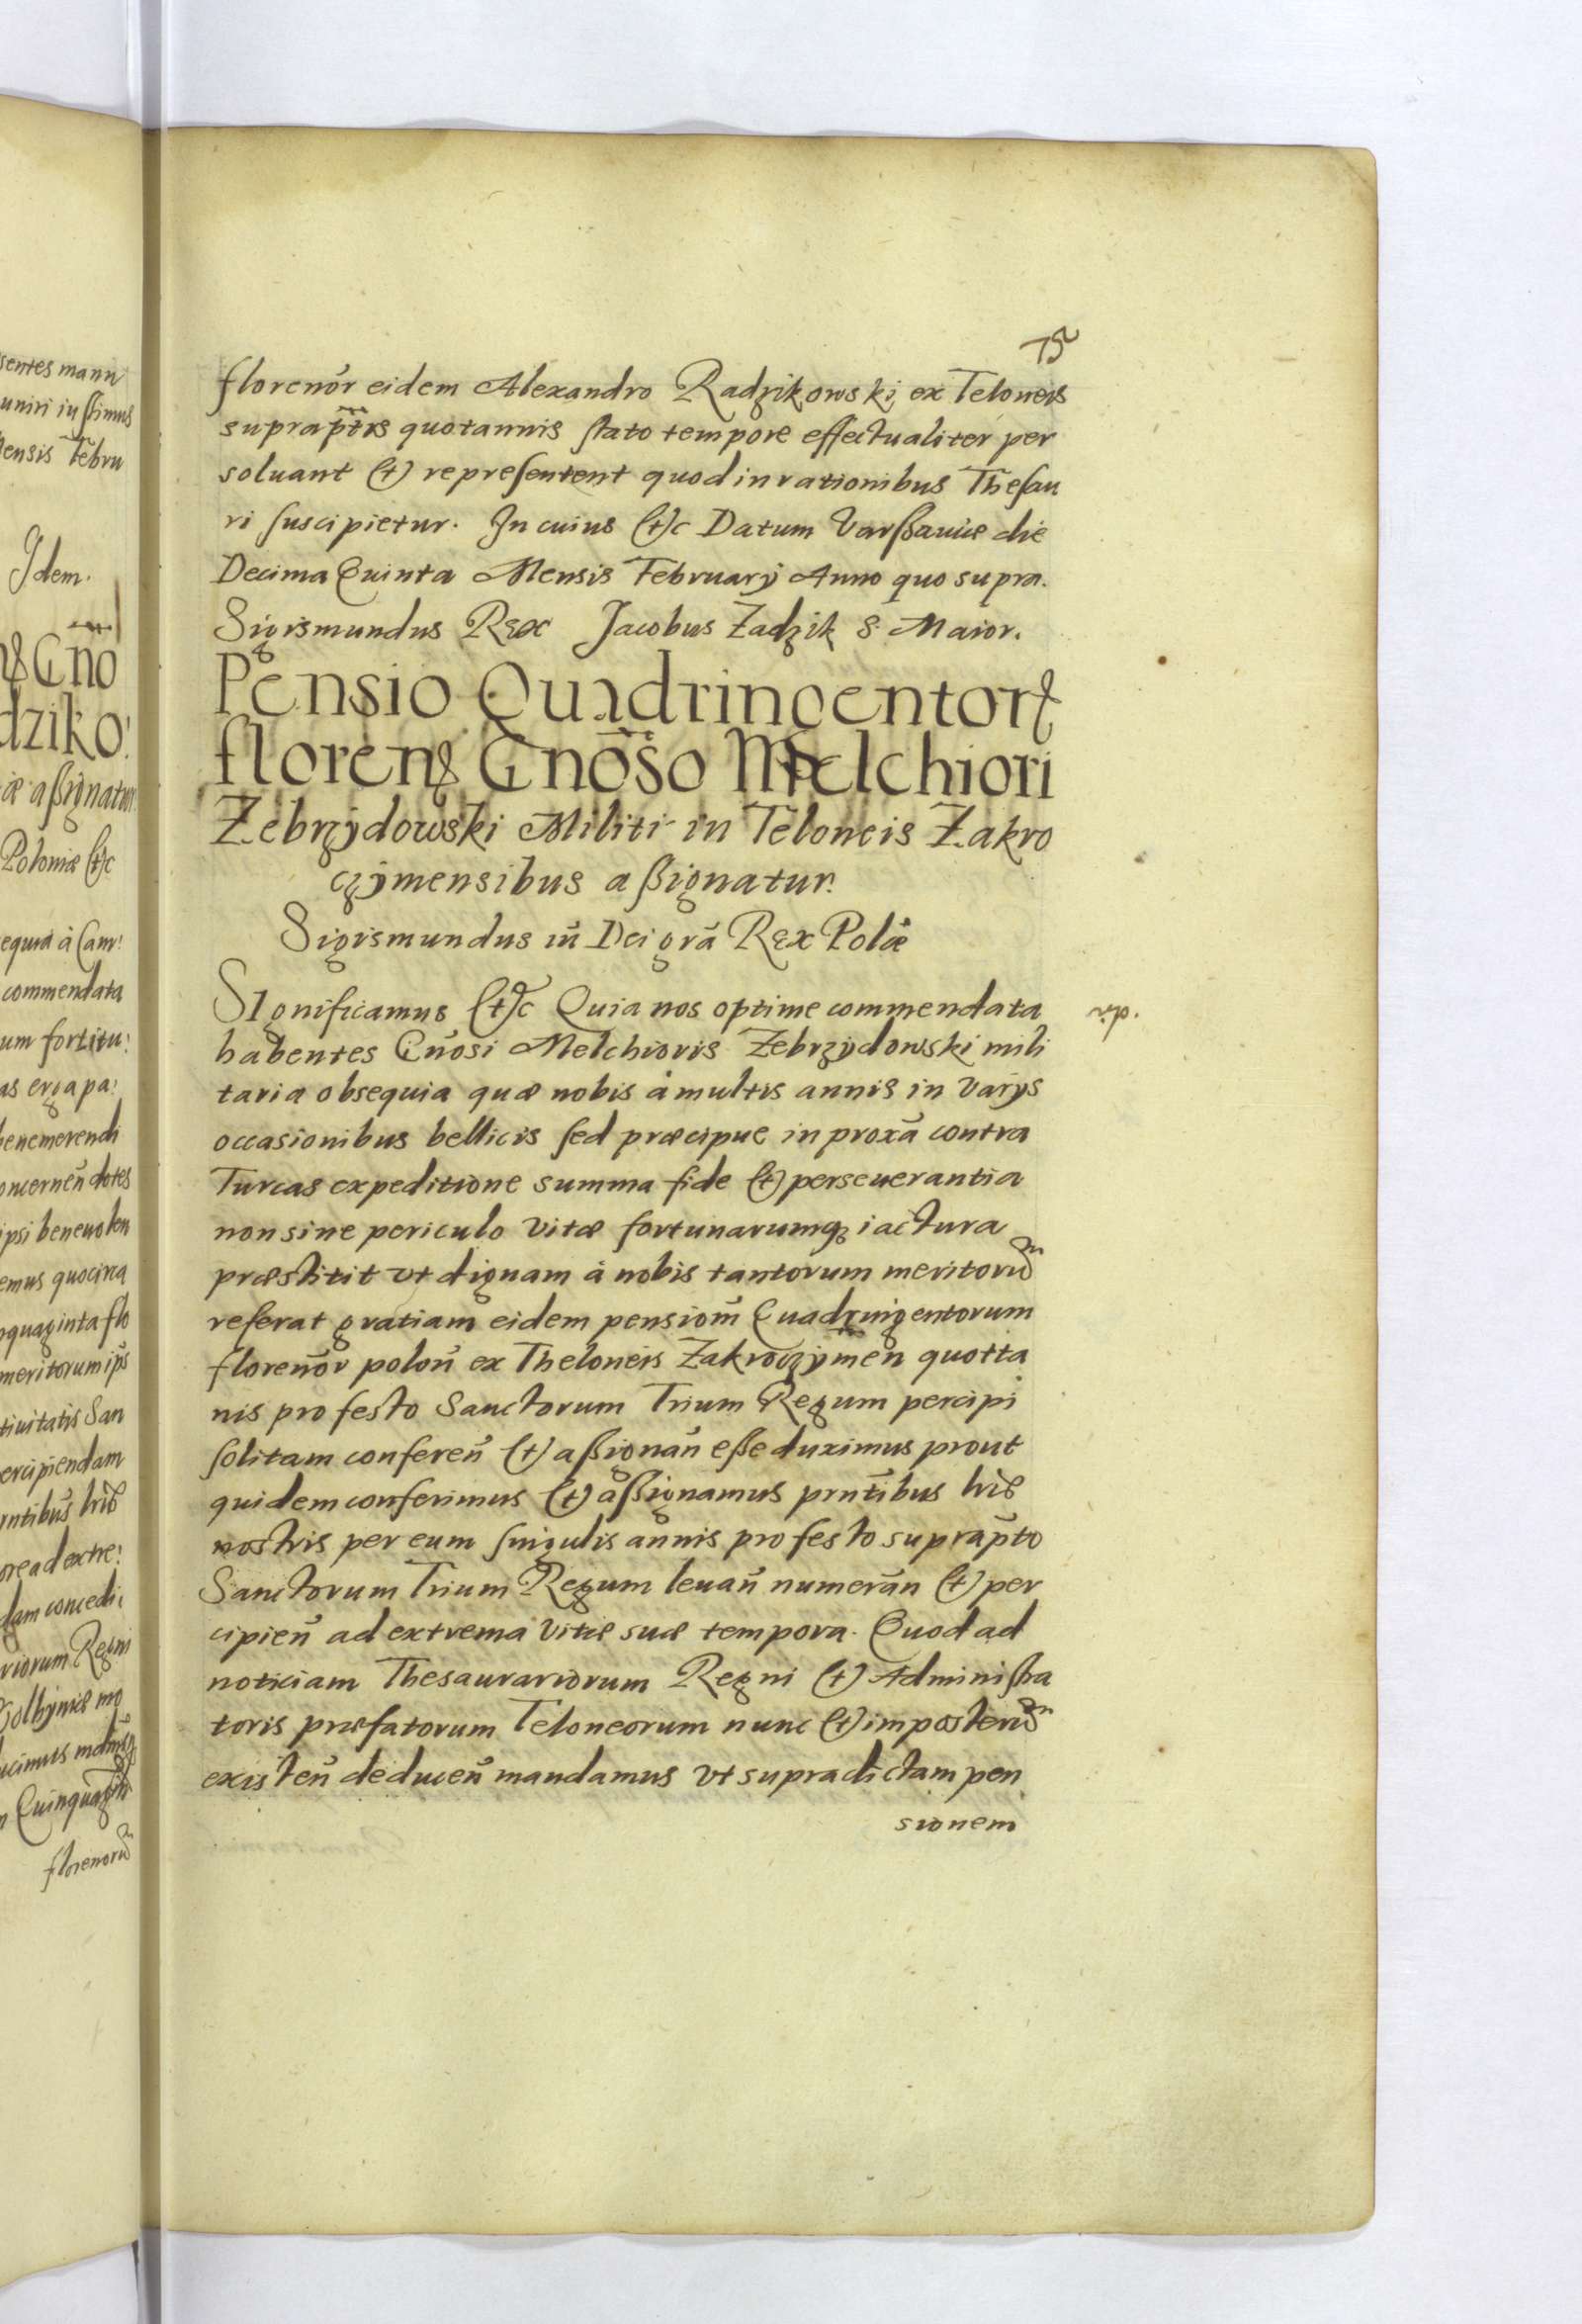 sentes manu
uniri iussimus
ensis Febru
Idem.
Gño
dziko:
æ assignatur
Poloniæ &c
equia à Cam:
commendata
um fortitu:
as erga pa:
benemerendi
oncernen̄ dotes
ipsi beneuolen
emus quocirca
nquaginta flo
meritorum ips
tiuitatis San
ercipiendam
ntibus lris
ad extre:
dam concedi:
riorum Regni
Golbyniæ mo
Quinquagin
florenorũ
752
florenōr eidem Alexandro Radzikowski ex Teloneis
suprap̄tis quotannis stato tempore effectualiter per
soluant & representent quod in rationibus Thesau
ri suscipietur. In cuius &c Datum Varssauiæ die
Decima Quinta Mensis Februarÿ Anno quo supra.
Sigismundus Rex Jacobus Zadzik S. Maior.
Pensio Quadringentorꝝ
florenꝝ Gnōso Melchiori
Zebrzÿdowski Militi in Teloneis Zakro
czÿmensibus assignatur.
Sigismundus iii Dei grā Rex Polæ
SIgnificamus &c Quia nos optime commendata
habentes Gn̄osi Melchioris Zebrzÿdowski mili
taria obsequia quæ nobis à multis annis in varÿs
occasionibus bellicis sed præcipue in proxā contra
Turcas expeditione summa fide & perseuerantia
non sine periculo vitæ fortunarumqꝫ iactura
præstitit vt dignam à nobis tantorum meritorũ
referat gratiam eidem pensiom̄ Quadringentorum
floren̄or polon̄ ex Theloneis Zakroczÿmen̄ quotta
nis pro festo Sanctorum Trium Regum percipi
solitam conferen̄ & assignan̄ esse duximus prout
quidem conferimus & assignamus prn̄tibus lris
nostris per eum singulis annis pro festo suprap̄to
Sanctorum Trium Regum leuan̄ numeran̄ & per
cipien̄ ad extrema vitæ suæ tempora. Quod ad
noticiam Thesaurariorum Regni & Administra
toris præfatorum Teloneorum nunc & imposterũ
existen̄ deducen̄ mandamus vt supradictam pen
sionem